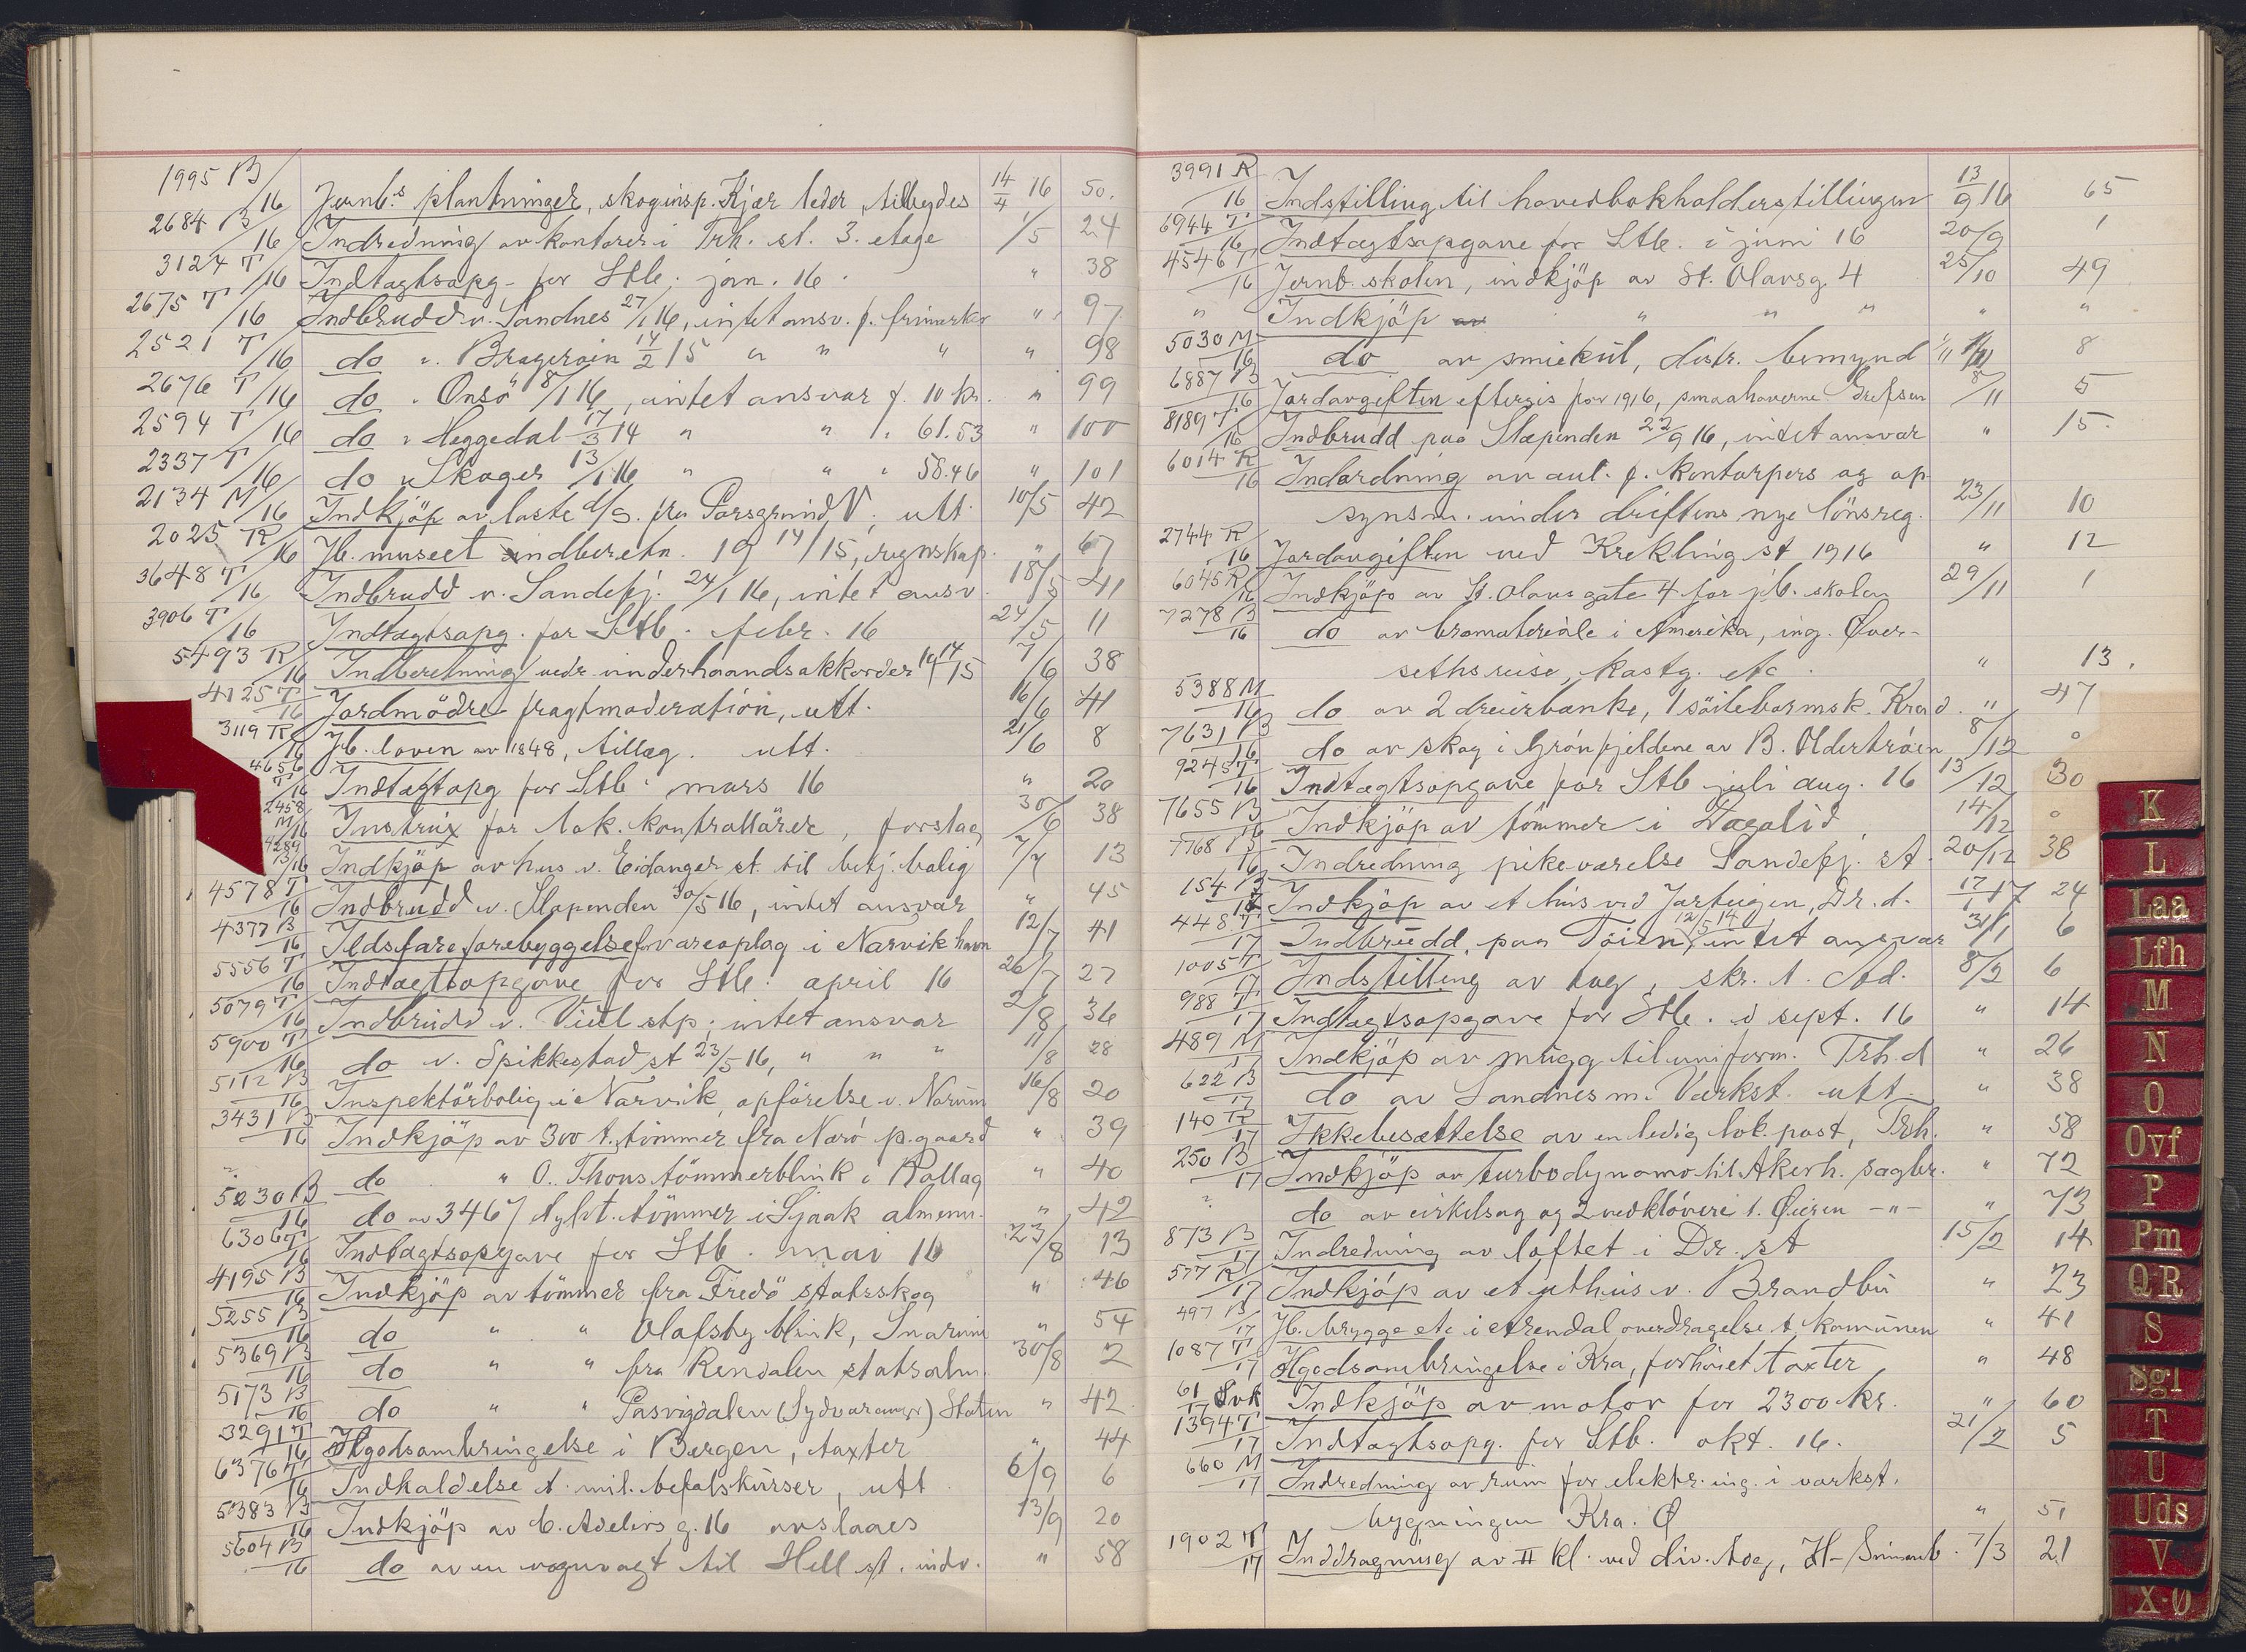 1995 B/16 Jernb.s plantninger, skoginsp. Kjær leder, tilbydes 14/4 16 50.
2684 B/16 Indredning av kontorer i Trh. st. 3. etage 1/5 24
3124 T/16 Indtægtsopg. for Stb. jan. 16. " 38
2675 T/16 Indbrudd v. Sandnes 27/1 16, intet ansv. f. frimerker " 97
2521 T/16 do v. Bragerøen 14/2 15 " " " " 98
2676 T/16 do " Onsö 8/1 16, intet ansvar f. 10 kr. " 99
2594 T/16 do v Heggedal 17/3 14 " " " 61.53 " 100
2337 T/16 do v Skoger 13/1 16 " " " 58.46 " 101
2134 M/16 Indkjöp av laste fra Porsgrund V. utt. 10/5 42
2025 R/16 Jb. museet indberetn. 19 14/15, regnskap. " 67
3648 T/16 Indbrudd v. Sandefj. 24/1 16, intet ansv. 18/5 41
3906 T/16 Indtægtsopg. for Stb. febr. 16 24/5 11
5493 R/16 Indberetning vedr. underhaandsakkorder 19 14/15 7/6 38
4125 T/16 Jordmödre fragtmoderation, utt. 16/6 41
3119 R/16 Jb. loven av 1848, tillæg. utt. 21/6 8
4656 T/16 Indtægtopg for Stb. mars 16 " 20
2458 M/16 Instrux for lok. kontrollörer, forslag 30/6 38
4289 B/16 Indkjöp av hus v. Eidanger st. til betj. bolig 7/7 13
4578 T/16 Indbrudd v. Slependen 30/5 16, intet ansvar " 45
4377 B/16 Ildsfare forebyggelse for vareoplag i Narvik havn 12/7 41
5556 T/16 Indtægtsopgave for Stb. april 16 26/7 27
5079 T/16 Indbrudd v. Viul stp. intet ansvar 2/8 36
5900 T/16 do v. Spikkestad st 23/5 16, " " " 11/8 28
5112 B/16 Inspektörbolig i Narvik, opförelse v. Narum 16/8 20
3431 B/16 Indkjöp av 300 t. tömmer fra Narö p.gaard " 39
" do " O. Thons tömmerblink i Rollag " 40
5230 B/16 do av 3467 tylvt. tömmer i Sjaak almenn. " 42
6306 T/16 Indtægtsopgave for Stb. mai 16 23/8 13
4195 B/16 Indkjöp av tömmer fra Fredö statsskog " 46
5255 B/16 do " " Olafsby blink, Snarum " 54
5369 B/16 do " " fra Rendalen statsalm. 30/8 2
5173 B/16 do " " Pasvigdalen (Sydvaranger) Staten " 42
3291 T/16 Ilgodsombringelse i Bergen, taxter " 44
6376 T/16 Indkaldelse t. mil. befalskurser, utt 6/9 6
5383 B/16 Indkjöp av C. Adelers g. 16 avslaaes 13/9 20
5604 B/16 do av en vognvægt til Hell st. indv. " 58
3991 R/16 Indstilling til hovedbokholderstillingen 13/9 16 65
6944 T/16 Indtægtsopgave for Stb. i juni 16 20/9 1
4546 T/16 Jernb. skolen, indkjöp av St. Olavsg. 4 25/10 49
" Indkjöp av " " " " "
5030 M/16 do av smiekul, distr. bemynd 1/11 8
6887 B/16 Jordavgiften eftergis for 1916, smaahaverne Grefsen 8/11 5
8189 T/16 Indbrudd paa Slependen 22/9 16, intet ansvar " 15.
6014 R/16 Indordning av aut. f. kontorpers og op
synsm. under driftens nye lönsreg. 23/11 10
2744 R/16 Jordavgiften ved Krekling st 1916 " 12
6045 R/16 Indkjöp av St. Olavs gate 4 for jb. skolen 29/11 1
7278 B/16 do av bromateriale i Amerika, ing. Øver-
seths reise, kostg. etc. " 13.
5388 M/16 do av 2 dreierbænke, 1 söileboremsk. Kra d. " 47
7631 B/16 do av skog i Grönfjeldene av B. Oldertröen 8/12 0
9245 T/16 Indtægtsopgave for Stb juli aug. 16 13/12 30
7655 B/16 Indkjöp av tömmer i Vagalid 14/12 0
7768 B/16 Indredning pikeværelse Sandefj. st. 20/12 38
154 B/17 Indkjöp av et hus ved Jarteigen, Dr. d. 17/1 17 24
448 T/17 Indbrudd paa Töien 12/5 14, intet ansvar 31/1 6
1005 T/17 Indstilling av tog, skr. t. Ad. 8/2 6
988 T/17 Indtægtsopgave for Stb. i sept. 16 " 14
489 M/17 Indkjöp av mugg til uniform. Trh. d " 26
622 B/17 do av Sandnes m. Værkst. utt. " 38
140 R/17 Ikkebesættelse av en ledig lok. post, Trh. " 58
250 B/17 Indkjöp av turbodynamo til Akerh. sagbr. " 72
" do av cirkelsag og 2 vedklövere t. Øieren -"- " 73
873 B/17 Indredning av loftet i Dr. st 15/2 14
577 R/17 Indkjöp av et uthus v. Brandbu " 23
497 B/17 Jb. brygge etc i Arendal overdragelse t. kommunen " 41
1087 T/17 Ilgodsombringelse i Kra, forhöiet taxter " 48
61/17 Svk Indkjöp av motor for 2300 kr. " 60
1394 T/17 Indtægtsopg. for Stb. okt. 16. 21/2 5
660 M/17 Indredning av rum for elektr. ing. i værkst.
bygningen Kra. Ø " 51
1902 T/17 Inddragning av II kl. ved div. tog, H-Smaalb. 7/3 21
K
L
Laa
Lfh
M
N
O
Ovf
P
Pm
QR
S
Sgl
T
U
Uds
V
X-Ø